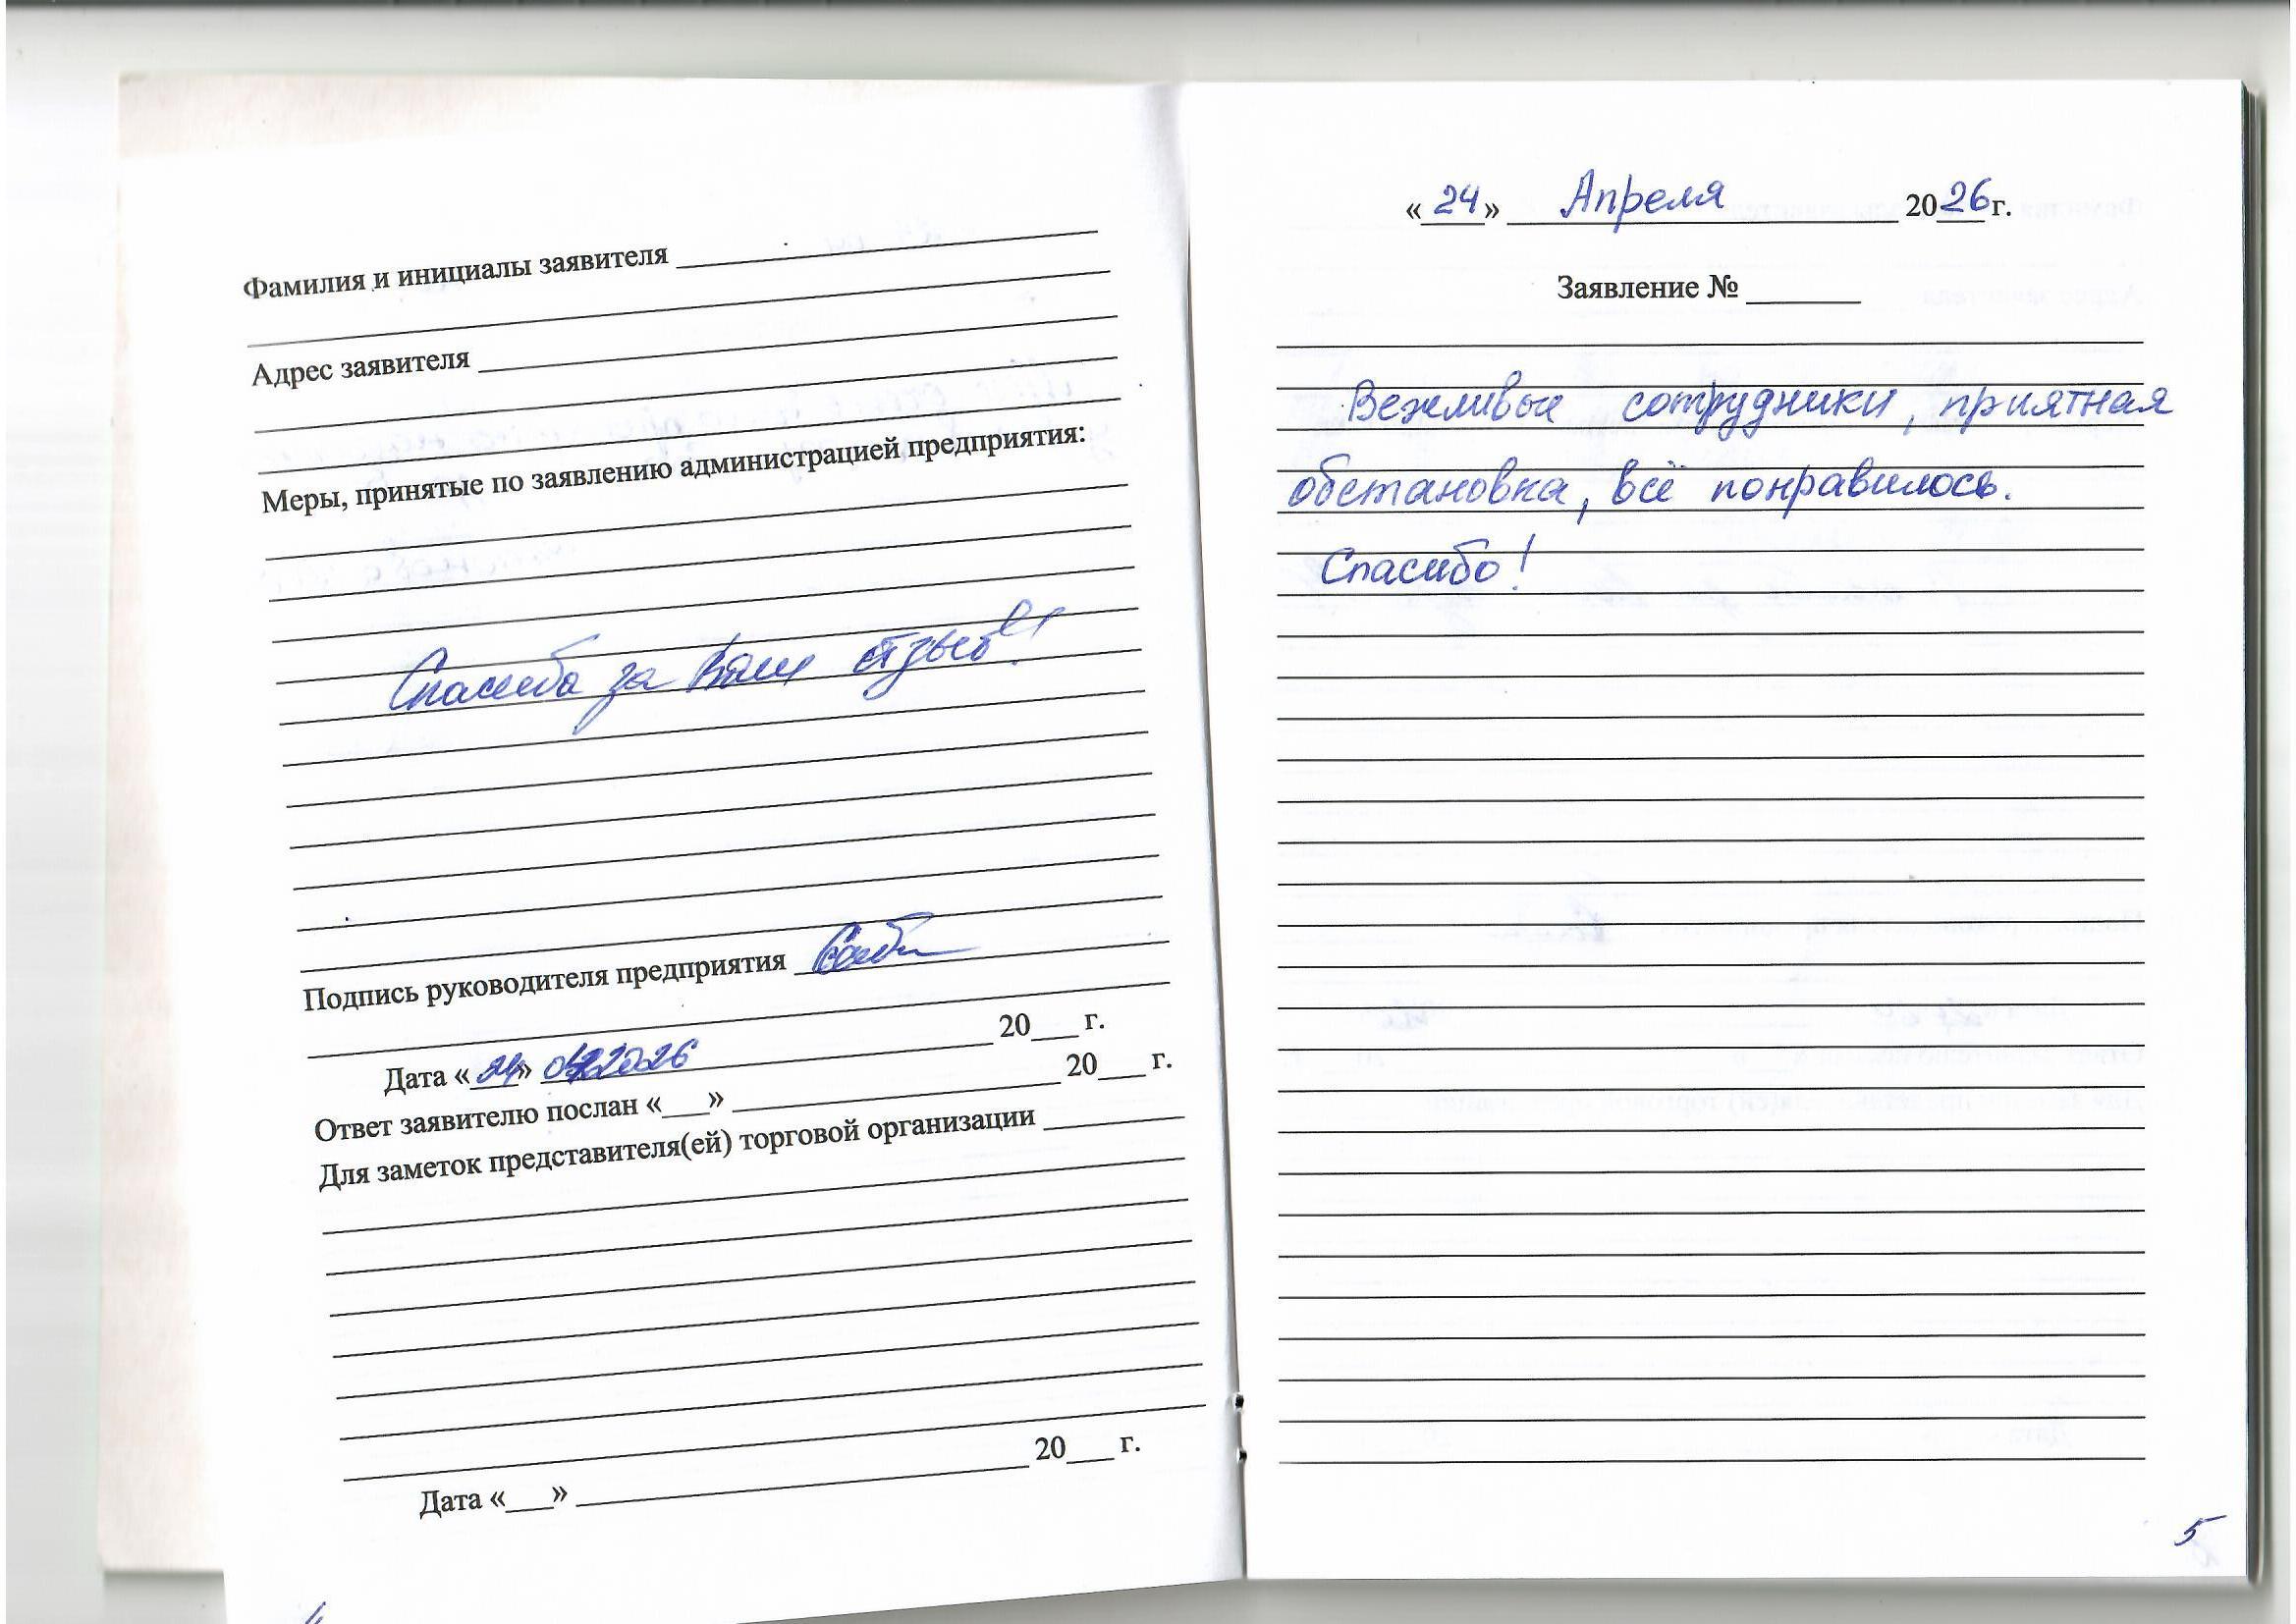 Фамилия и инициалы заявителя
Адрес заявителя
Меры, принятые по заявлению администрацией предприятия:
Спасибо за Ваш отзыв!
Подпись руководителя предприятия
20___ г.
Дата «24» 04.2026
Ответ заявителю послан «___» 20___ г.
Для заметок представителя(ей) торговой организации
Дата «___» 20___ г.
4
«24» Апреля 2026 г.
Заявление №
Вежливые сотрудники, приятная
обстановка, всё понравилось.
Спасибо!
5